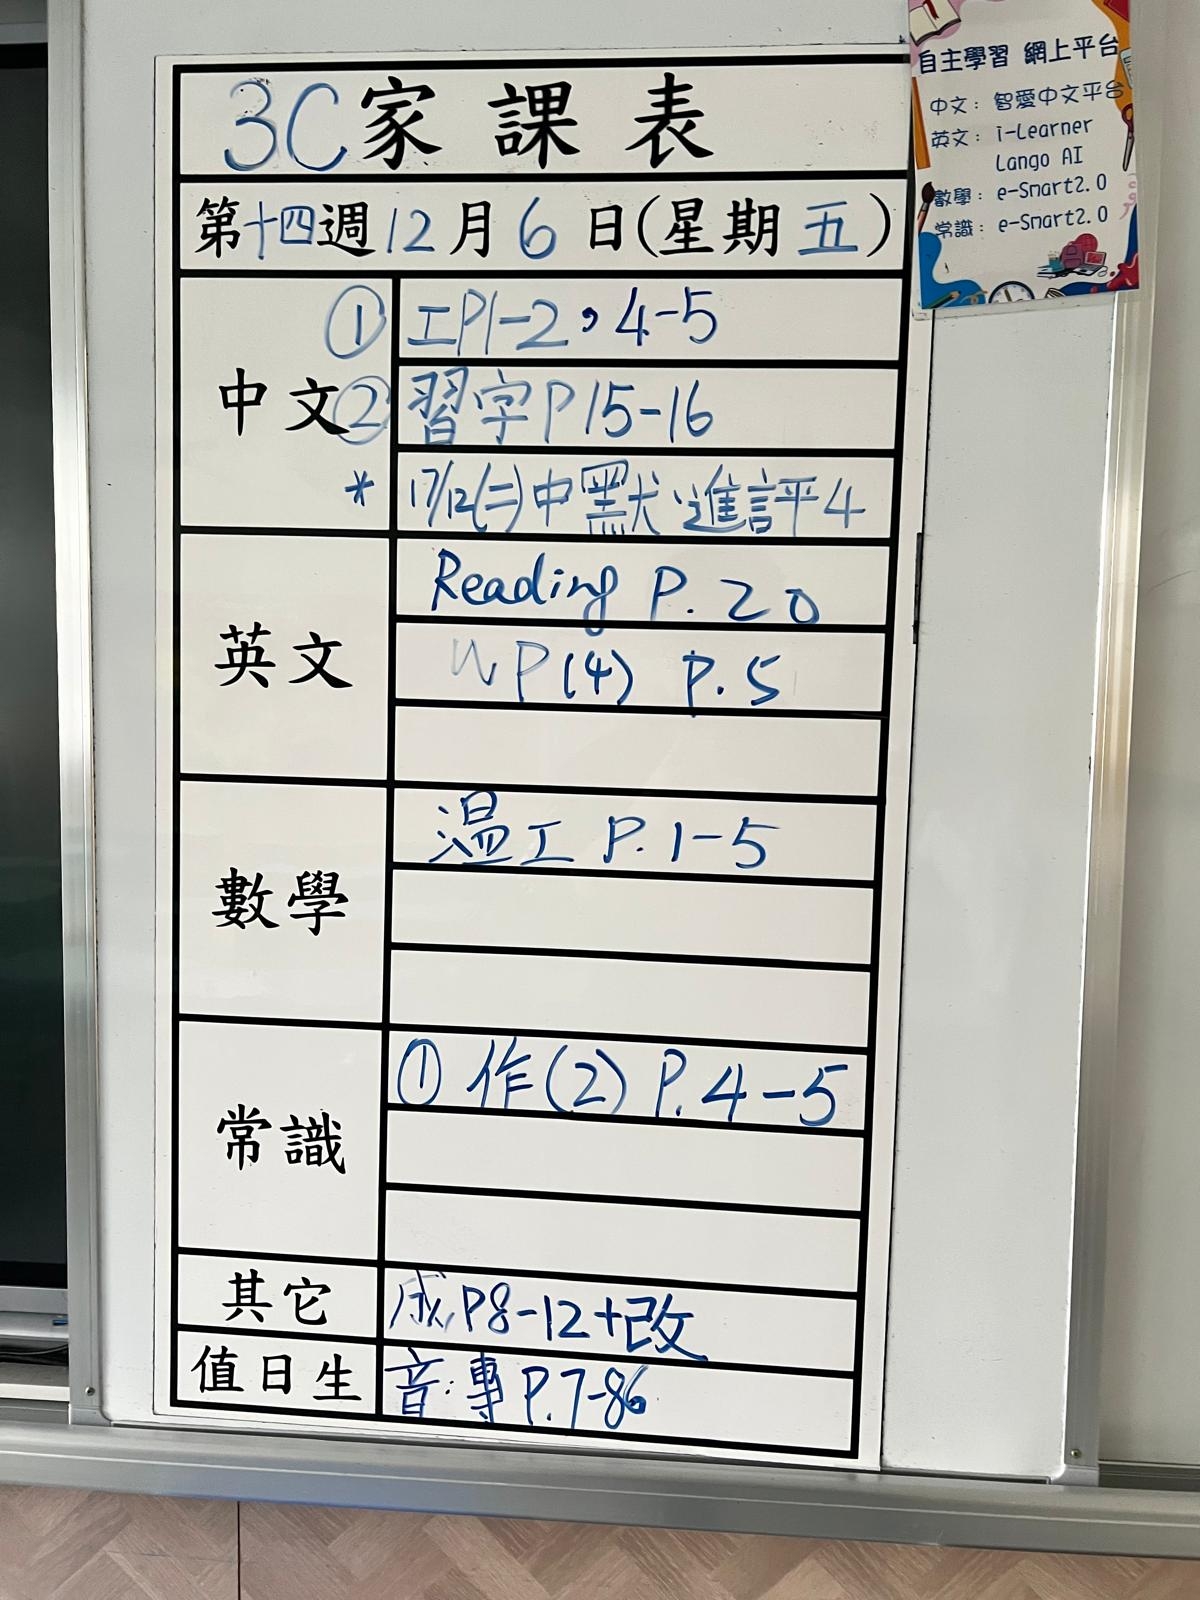 3C家課表
第十四週12月6日(星期五)
中文
① 工P1-2，4-5
② 習字P15-16
* 17/12(二)中默：進評4
英文
Reading P.20
WP(4) P.5
數學
溫工 P.1-5
常識
① 作(2) P.4-5
其它
成P8-12+改
值日生
音：專P.7-86
自主學習 網上平台
中文：智愛中文平台
英文：i-Learner
Lango AI
數學：e-Smart2.0
常識：e-Smart2.0